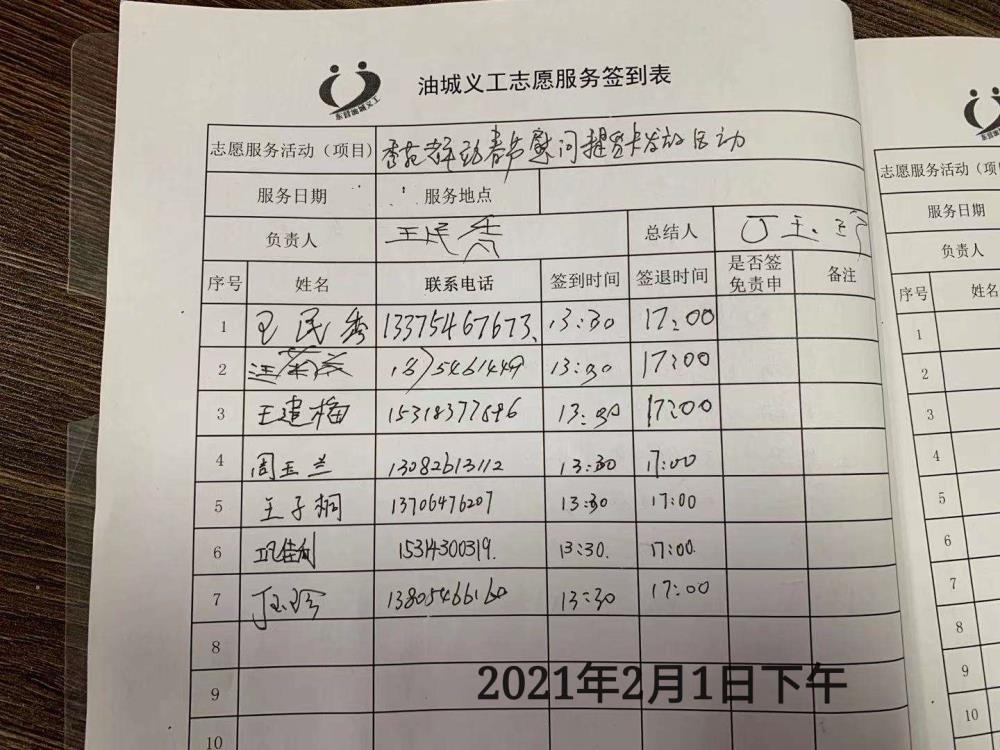 油城义工志愿服务签到表
东营油城义工
志愿服务活动（项目） 春节慰问提货卡发放活动
服务日期 服务地点
负责人 王民秀 总结人 丁玉珍
序号 姓名 联系电话 签到时间 签退时间 是否签免责申 备注
1 王民秀 13375467673 13:30 17:00
2 5461449 13:30 17:00
3 王建梅 15318377696 13:30 17:00
4 周玉兰 13082613112 13:30 17:00
5 王子桐 13706476207 13:30 17:00
6 15314300319. 13:30. 17:00
7 丁玉珍 13805466160 13:30 17:00
8
9
10
2021年2月1日下午
志愿服务活动（项
服务日期
负责人
序号 姓名
1
2
3
4
5
6
7
8
9
10